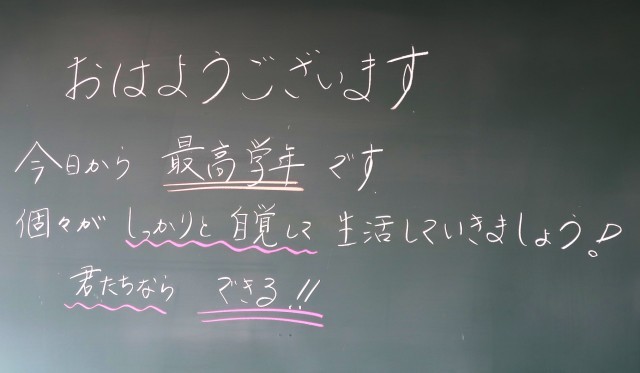 おはようございます
今日から 最高学年 です
個々が しっかりと 自覚して 生活していきましょう!
君たちなら できる!!